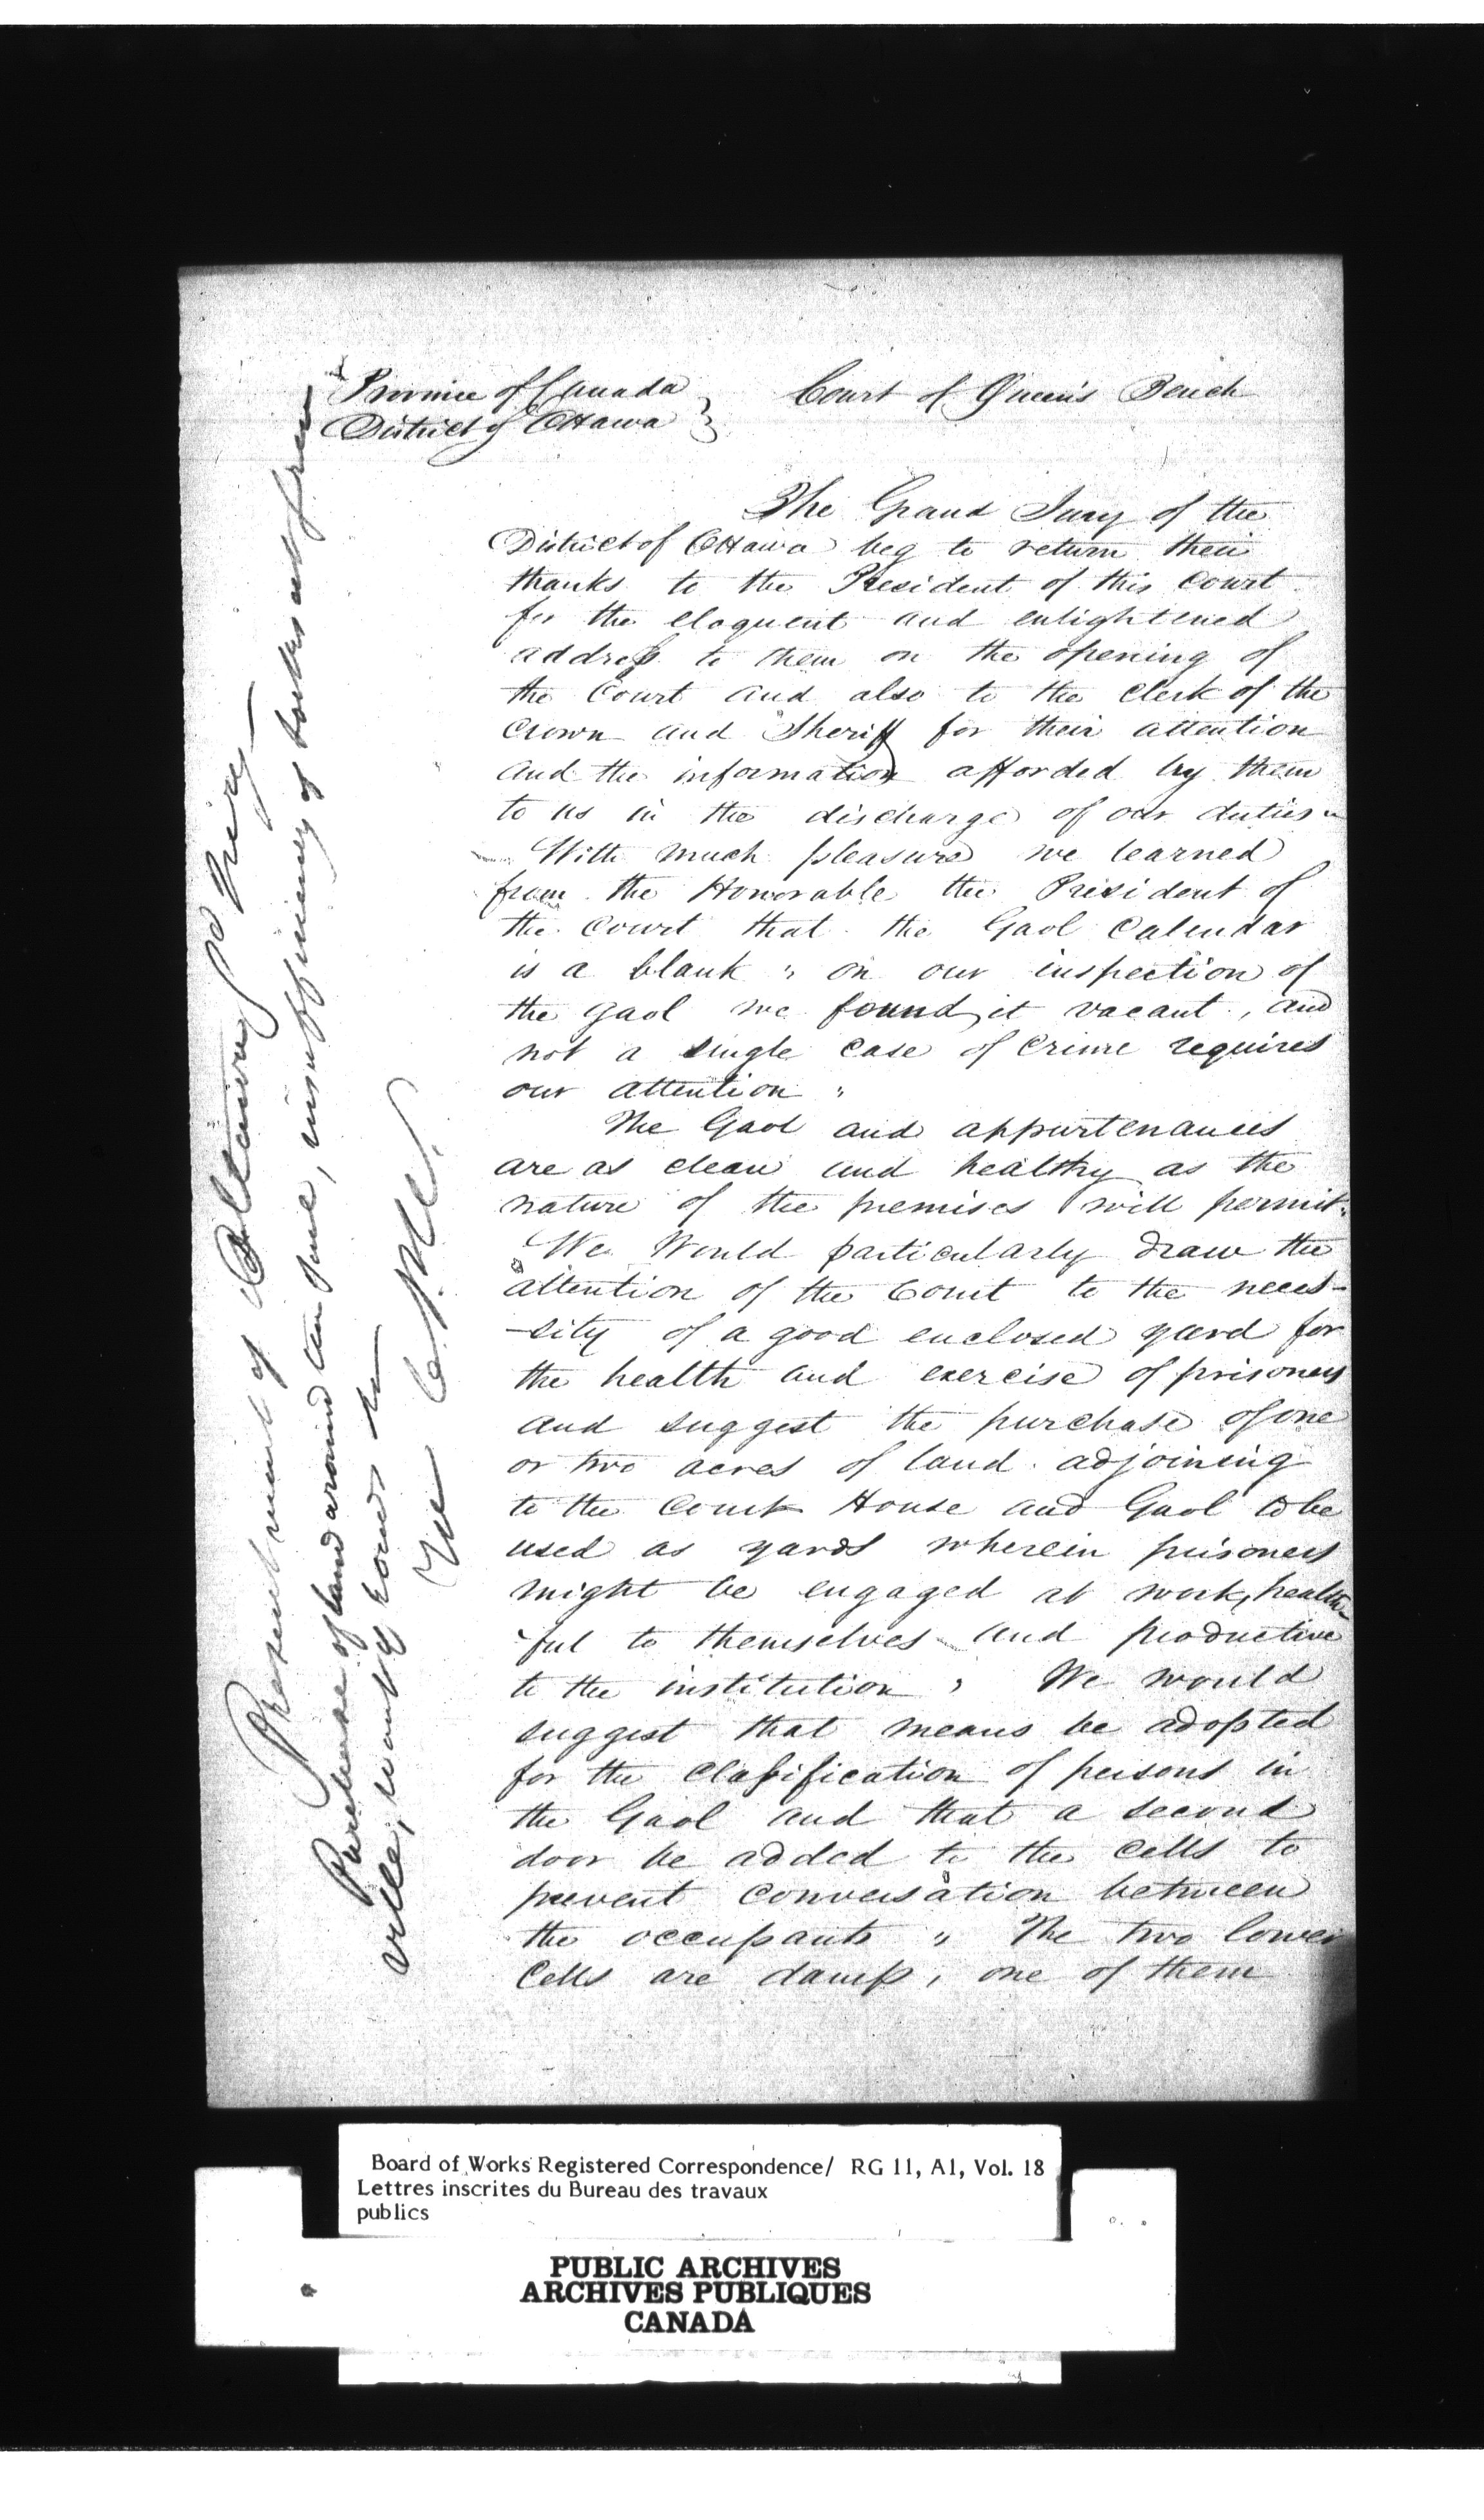 Province of Canada
District of Ottawa
Court of Queen's Bench
The Grand Jury of the
District of Ottawa beg to return their
thanks to the President of this Court
for the eloquent and enlightened
address to them on the opening of
the Court and also to the Clerk of the
Crown and Sheriff for their attention
and the information afforded by them
to us in the discharge of our duties
With much pleasure we learned
from the Honorable the President of
the Court that the Gaol Calendar
is a blank " on our inspection of
the gaol we found it vacant, and
not a single case of Crime requires
our attention "
The Gaol and appurtenances
are as clean and healthy as the
nature of the premises will permit.
We Would particularly draw the
attention of the Court to the neces-
-sity of a good enclosed yard for
the health and exercise of prisoners
and suggest the purchase of one
or two acres of land adjoining
to the Court House and Gaol to be
used as yards wherein prisoners
might be engaged at work, health-
ful to themselves and productive
to the institution, We would
suggest that means be adopted
for the classification of persons in
the Gaol and that a second
door be added to the cells to
prevent conversation between
the occupants " The two lower
Cells are damp, one of them
Presentment of
Purchase of land around the Same, insufficiency of
ville, want of
Board of Works Registered Correspondence/ RG 11, A1, Vol. 18
Lettres inscrites du Bureau des travaux
publics
PUBLIC ARCHIVES
ARCHIVES PUBLIQUES
CANADA